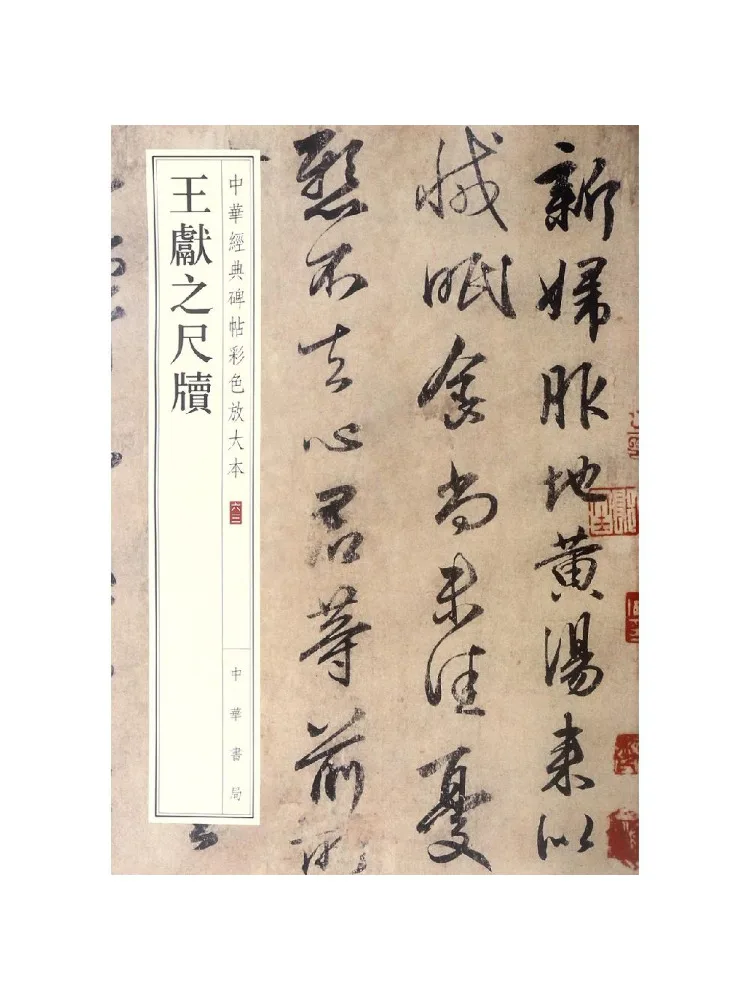 新婦服地黃湯来以
减眠食尚未佳憂
懸不去心君等前所
中華經典碑帖彩色放大本
六三
中華書局
王獻之尺牘